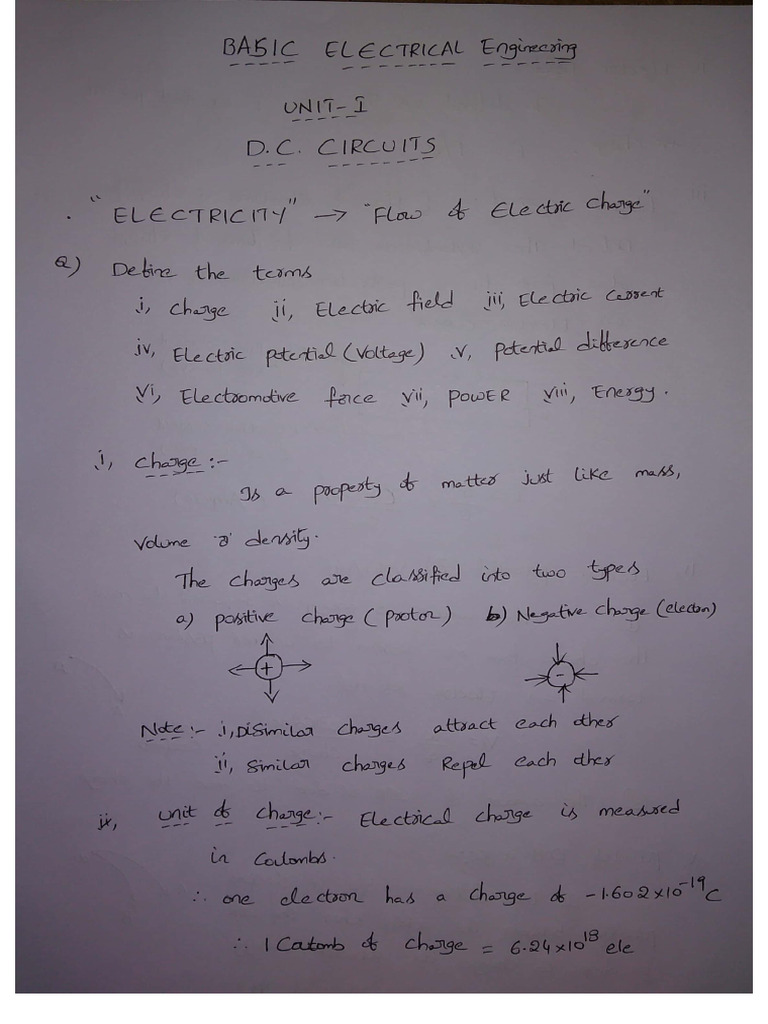 BASIC ELECTRICAL Engineering
UNIT-I
D.C. CIRCUITS
. "ELECTRICITY" → "Flow of Electric charge"
Q) Define the terms
i, charge ii, Electric field iii, Electric Current
iv, Electric potential (Voltage) v, potential difference
vi, Electromotive force vii, POWER viii, Energy.
i, charge :-
Is a property of matter just like mass,
Volume density.
The charges are classified into two types
a) positive charge ( proton ) b) Negative charge (electon)
+ -
Note :- i, Disimilar charges attract each other
ii, similar charges Repel each other
ii, unit of charge :- Electrical charge is measured
in Coulombs.
∴ one electron has a charge of -1.602×10⁻¹⁹C
∴ 1 Coulomb of charge = 6.24×10¹⁸ ele